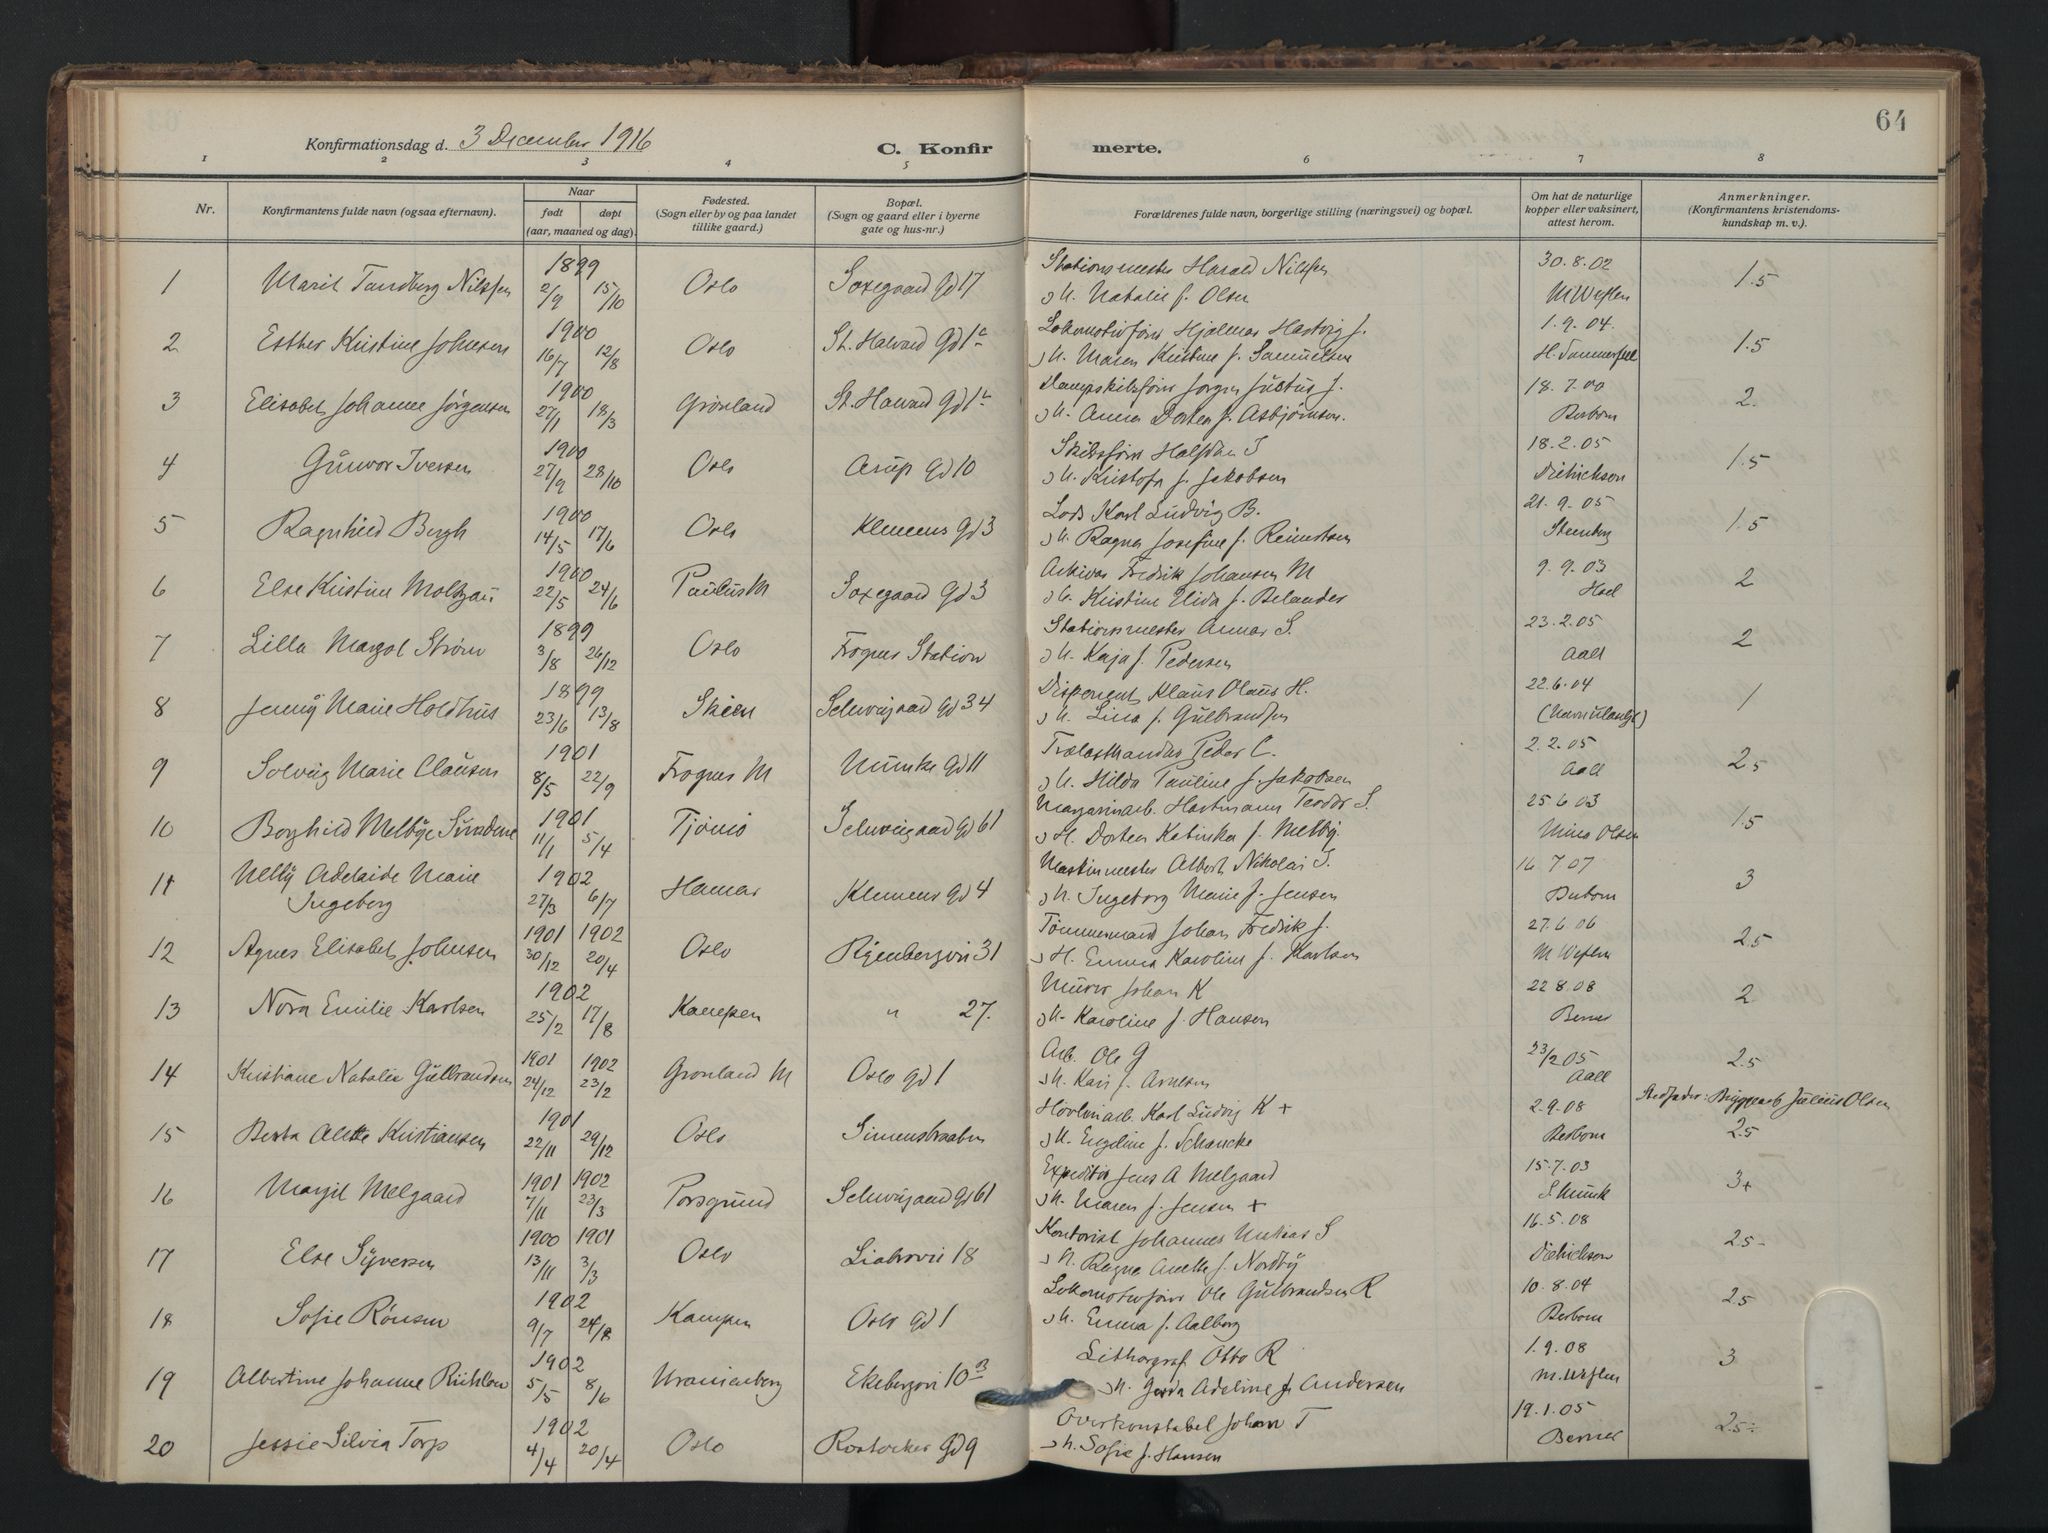 64
Konfirmationsdag d. 3 December 1916
C. Konfirmerte.
1 2 3 4 5 6 7 8
Nr.
Konfirmantens fulde navn (ogsaa efternavn).
Naar
født døpt
(aar, maaned og dag).
Fødested.
(Sogn eller by og paa landet
tillike gaard.)
Bopæl.
(Sogn og gaard eller i byerne
gate og hus-nr.)
Forældrenes fulde navn, borgerlige stilling (næringsvei) og bopæl.
Om hat de naturlige
kopper eller vaksinert,
attest herom.
Anmerkninger.
(Konfirmantens kristendoms-
kundskap m. v.).
1 Marit Tandberg Nilssen 1899 2/9 15/10 Oslo Saxegaard gd 17 Stationsmester Harald Nilssen 30.8.02 1.5
H. Natalie f. Olsen
2 Esther Kristine Johnsen 1900 16/7 12/8 Oslo St. Halvard gd 1 Lokomotivfører Hjalmar Hartvig J. 1.9.04. 1.5
H. Maren Kristine f. Samuelsen
3 Elisabet Johanne Jörgensen 1900 27/1 18/3 Grönland St. Halvard gd 1 Dampskibsfører Jorgen Justus J. 18.7.00 2.
H. Anna Dortea f. Asbjörnsen. Berbom
4 Gunvor Iversen 1900 27/9 28/10 Oslo Arup gd 10 Skibsfører Halfdan I 18.2.05 1.5
H. Kristofa f. Jakobsen Didrichson
5 Ragnhild Bergh 1900 14/5 17/6 Oslo Klemens gd 3 Lods Karl Ludvig B. 21.9.05 1.5
H. Ragna Josefine f. Reinertsen Stenberg
6 Else Kristine Moltzau 1900 22/5 24/6 Paulus M Saxegaard gd 3 Arkivar Fredrik Johansen M 9.9.03 2
H. Kristine Elida f. Belander Hoel
7 Lilla Margot Ström 1899 3/8 26/12 Oslo Frogner Station Stationsmester Annar S. 23.2.05 2
H. Kaja f. Pedersen Aall
8 Jenny Marie Holdhus 1899 23/6 13/8 Skien Schweigaard gd 34 Disponent Klaus Olaus H. 22.6.04 1
H. Lina f. Gulbrandsen
9 Solveig Marie Clausen 1901 8/5 22/9 Frogner M Munke gd 11 Trælasthandler Peder C. 2.2.05 2.5
H. Hilda Pauline f. Jakobsen Aall
10 Borghild Melbye Sundene 1901 11/1 5/4 Tjömö Schweigaard gd 61 Margarinarb. Hartmann Teodor S. 25.6.03 1.5
H. Dortea Katinka f. Melby. Nina Olsen
11 Nelly Adelaide Marie 1902 27/3 6/7 Hamar Klemens gd 4 Maskinmester Albert Nikolai I. 16 7 07 3
Ingeberg H. Ingeborg Marie f. Jensen Berbom
12 Agnes Elisabet Johnsen 1901 1902 30/12 20/4 Oslo Ryenbergvei 31 Tömmermand Johan Fredrik J. 27.6.06 2.5
H. Emma Karoline f. Karlsen
13 Nora Emilie Karlsen 1902 25/2 17/8 Kampen " 27. Murer Johan K 22 8.08 2
H. Karoline f. Hansen Berner
14 Kristiane Natalie Gulbrandsen 1901 1902 24/12 23/2 Gronland M Oslo gd 1 Arb. Ole G 23/2 05 2.5
H. Kari f. Arnesen Aall
15 Berta Alette Kristiansen 1901 22/11 29/12 Oslo Simensbraaten Hövleriarb. Karl Ludvig K + 2.9.08 Stedfader: Bryggearb Julius Olsen
H. Engeline f. Schancke Berbom 2.5
16 Margit Melgaard 1901 1902 7/11 23/3 Porsgrund Schweigaard gd 61 Expeditör Jens A Melgaard 15.7.03 3+
H. Maren f. Jensen + S. Munk
17 Else Syversen 1900 1901 13/11 3/3 Oslo Liabrovei 18 Kontorist Johannes Matias S 16.5.08 2.5-
H. Ragna Anette f. Nordby Didrichson
18 Sofie Rönsen 1902 9/7 24/8 Kampen Oslo gd 1 Lokomotivfører Ole Gulbrandsen R 10.8.04 2.5
H. Emma f. Aalborg Berbom
19 Albertine Johanne Rühlow 1902 5/5 8/6 Uranienborg Ekebergvei 10 B Lithograf Otto R 1.9.08 3
H. Gerda Adeline f. Andersen
20 Jessie Silvia Torp 1902 4/4 20/4 Oslo Rostocker gd 9 Overkonstabel Johan T 19.1.05 2.5-
H. Sofie f. Hansen Berner